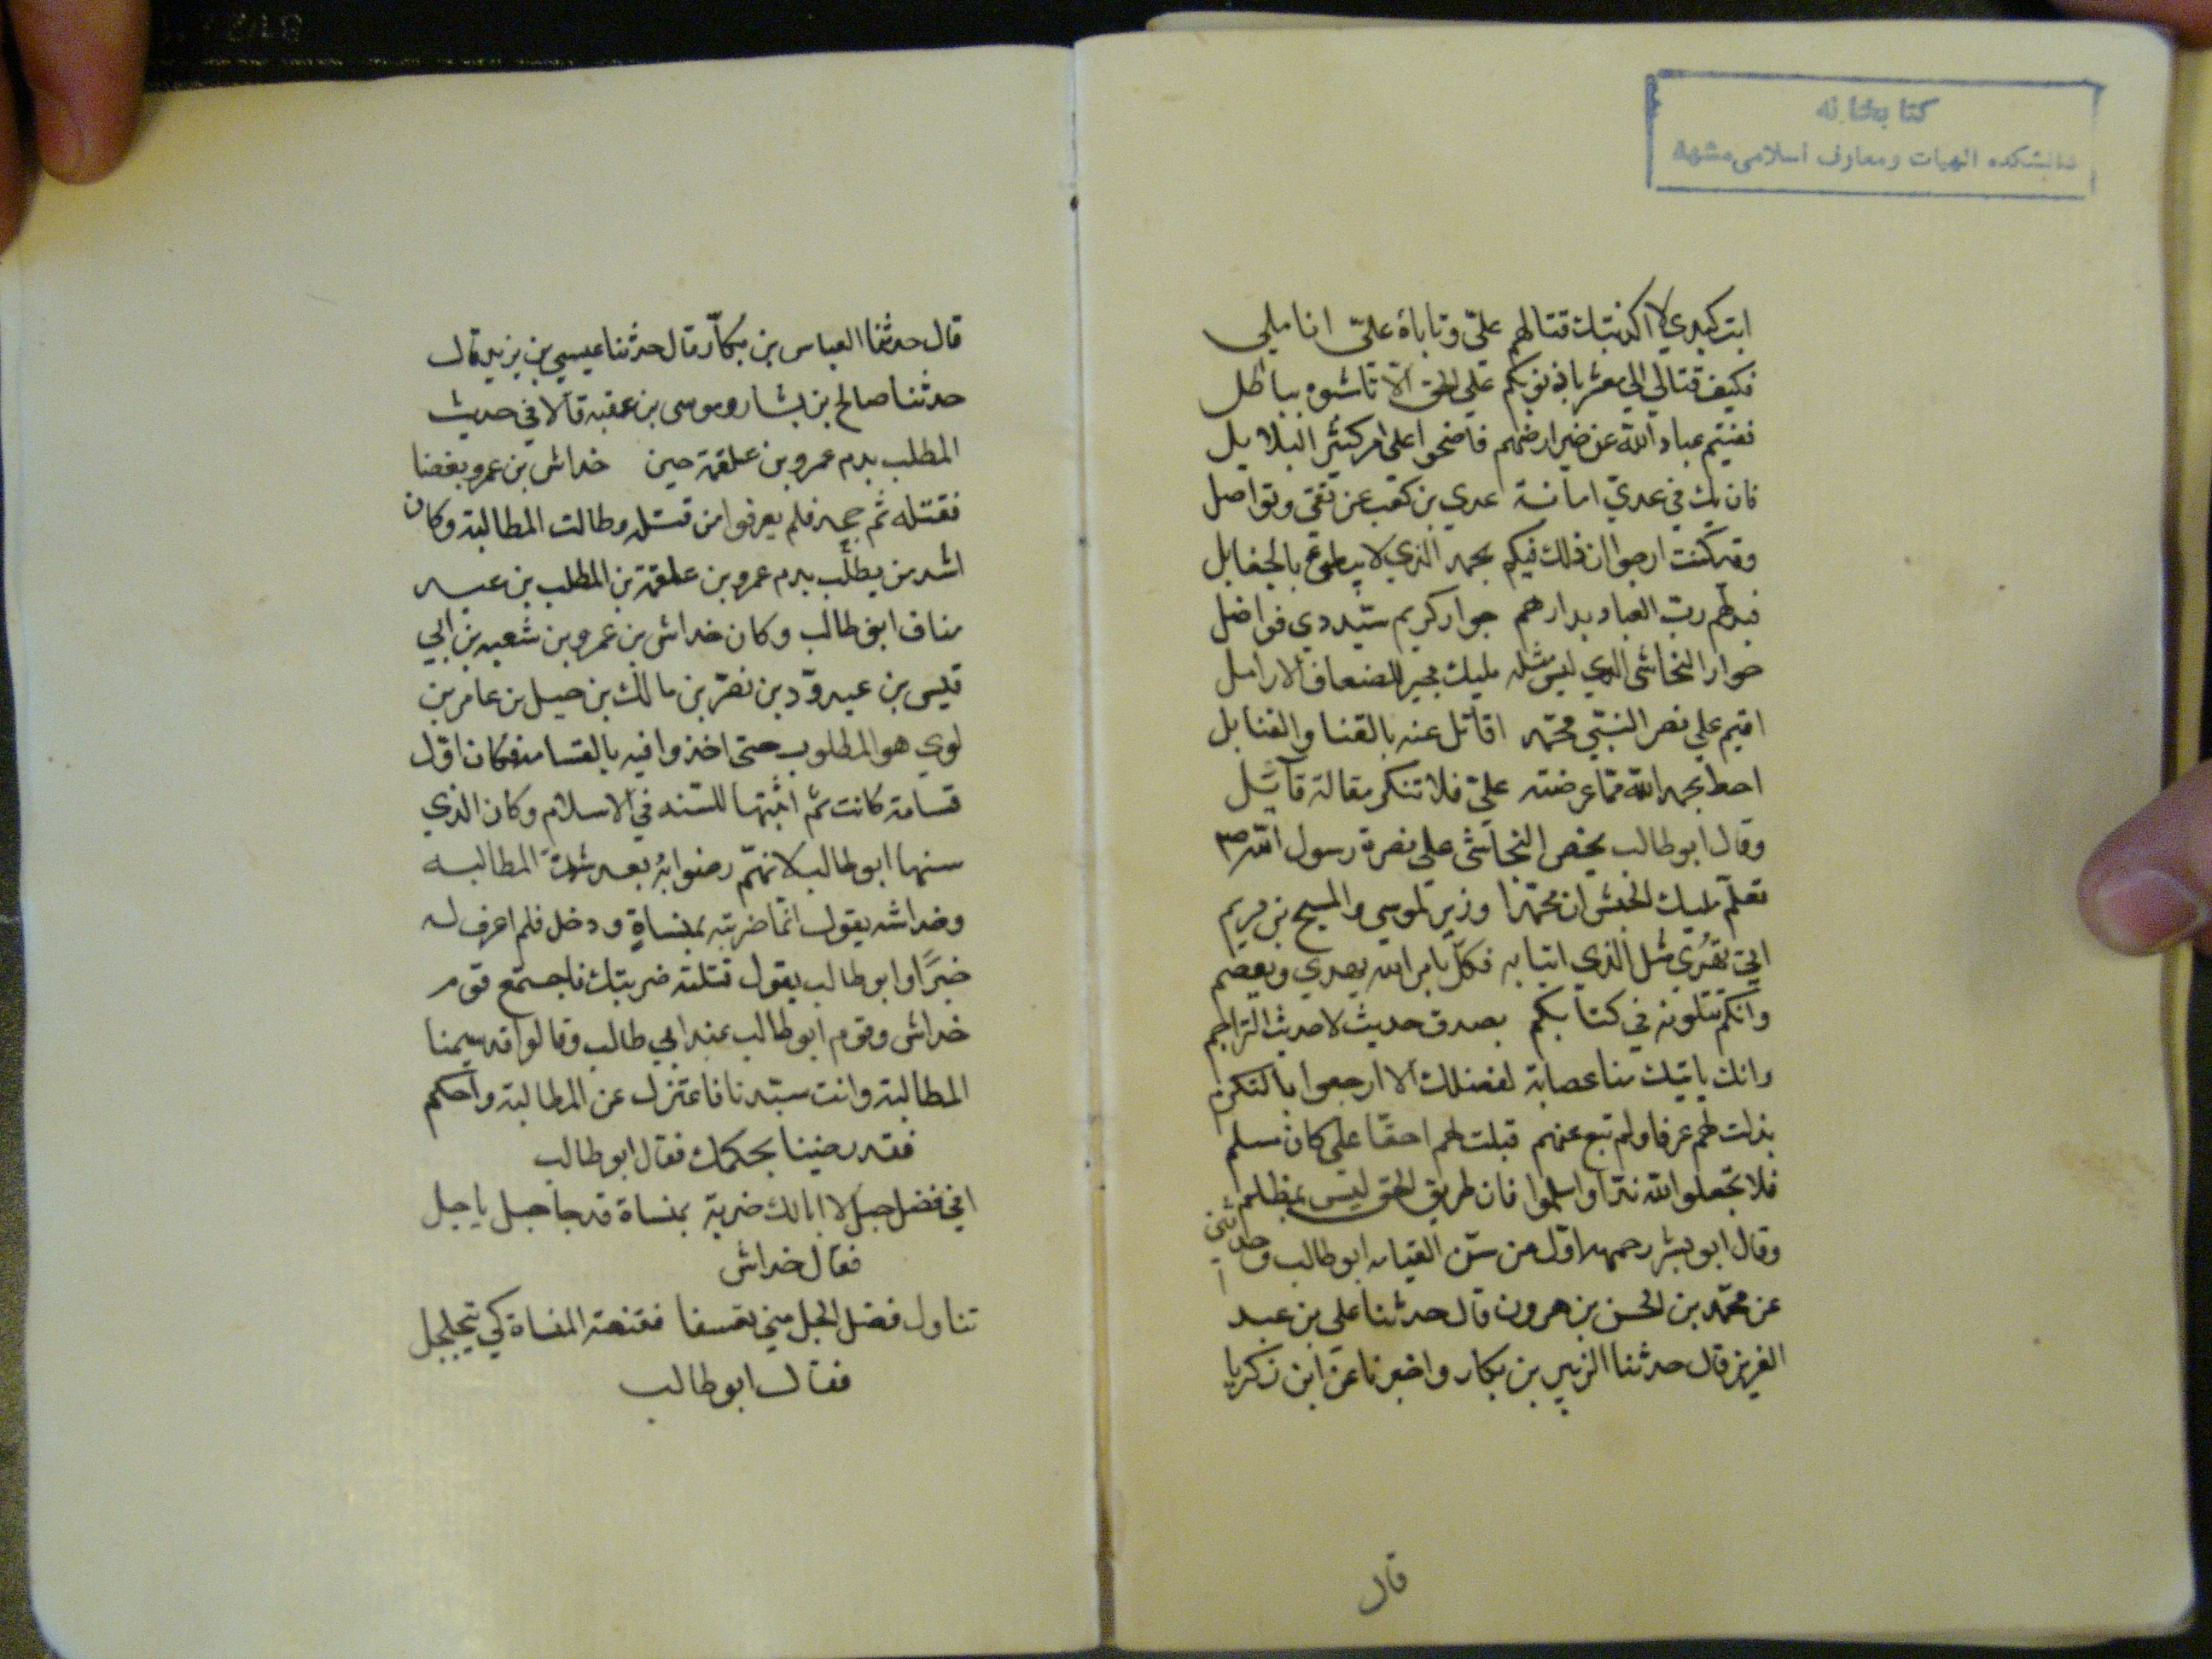 كتابخانه
دانشكده الهيات ومعارف اسلامى مشهد
ابت كبدي لا اكذبنك قتالهم علىّ وتاباه علىّ اناملي
فكيف قتالي معشرا علي الحق الا تاشبوه بباطل
نفيتم عباد الله عن ارضهم فاضحوا على امر كثير البلابل
فان يك في عديّ امانة عدي بن كعب عن تقى وتواصل
وقد كنت ارجوا ان ذلك فيكم بحمد الذي لا يطبع بالجغابل
فبدلهم ربّ العباد بدارهم جوار كريم سيّد دي فواضل
جوار النجاشي الدي ليس مثله مليك مجير للضعاف الارامل
اقيم علي نصر النبيّ محمّد اقاتل عنه بالقنا والقنابل
احط بحمد الله ممّا عرضته علىّ فلا تنكر مقالة قايل
وقال ابو طالب يحض النجاشي علي نصرة رسول الله ص
تعلّم مليك الحبش ان محمّدا وزير لموسي والمسيح بن مريم
اتي بهدي مثل الذي اتيا به فكل بامر الله يهدي ويعصم
وانكم تتلونه في كتابكم بصدق حديث لا حديث التراجم
وانك ياتيك منا عصابة لفضلك الا ارجعوا بالتكرم
بذلت لهم عرفا ولم تبع عنهم قبلت لهم احقّا على كان مسلم
فلا تجعلوا لله ندّا واسلموا فان طريق الحق ليس بمظلم
وقال ابو بشر رحمه اوّل من سنّ القيامه ابو طالب وحدثني
عن محمّد بن الحسن بن هرون قال حدثنا علي بن عبد
العزيز قال حدثنا الزبير بن بكار واخبرنا عن ابن زكريا
قال
قال حدثنا العباس بن بكّار قال حدثنا عيسي بن يزيد قال
حدثنا صالح بن بشار وموسى بن عقبه قالا في حديث
المطلب بدم عمرو بن علقمة حين خداش بن عمرو بعضا
فقتله ثم جحد فلم يعرفوا من قتله وطالت المطالبة وكان
اشد من يطلب بدم عمرو بن علقمة بن المطلب بن عبد
مناف ابو طالب وكان خداش بن عمرو بن شعبه بن ابي
قيس بن عبد ودّ بن نصر بن مالك بن حسل بن عامر بن
لوي هو المطلوب حتى اخذوا فيه بالقسامه فكان اوّل
قسامة كانت ثم اثبتها السنه في الاسلام وكان الذي
سنها ابو طالب لانهم رضوا به بعد شدة المطالبه
وخداش يقول انما ضربته بمنساةٍ ودخل فلم اعرف له
خبرًا وابو طالب يقول قتلته ضربتك فاجتمع قوم
خداش وقوم ابو طالب عند ابي طالب وقالوا قد سيمنا
المطالبة وانت سيّدنا فاعتزل عن المطالبة واحكم
فقد رضينا بحكمك فقال ابو طالب
افي فضل حبل لا ابا لك ضربة بمنساة قد جا حبل باحبل
فقال خداش
تناول فضل الحبل مني تعسفا فقنعته المنساة كي يتجلجل
فقال ابو طالب